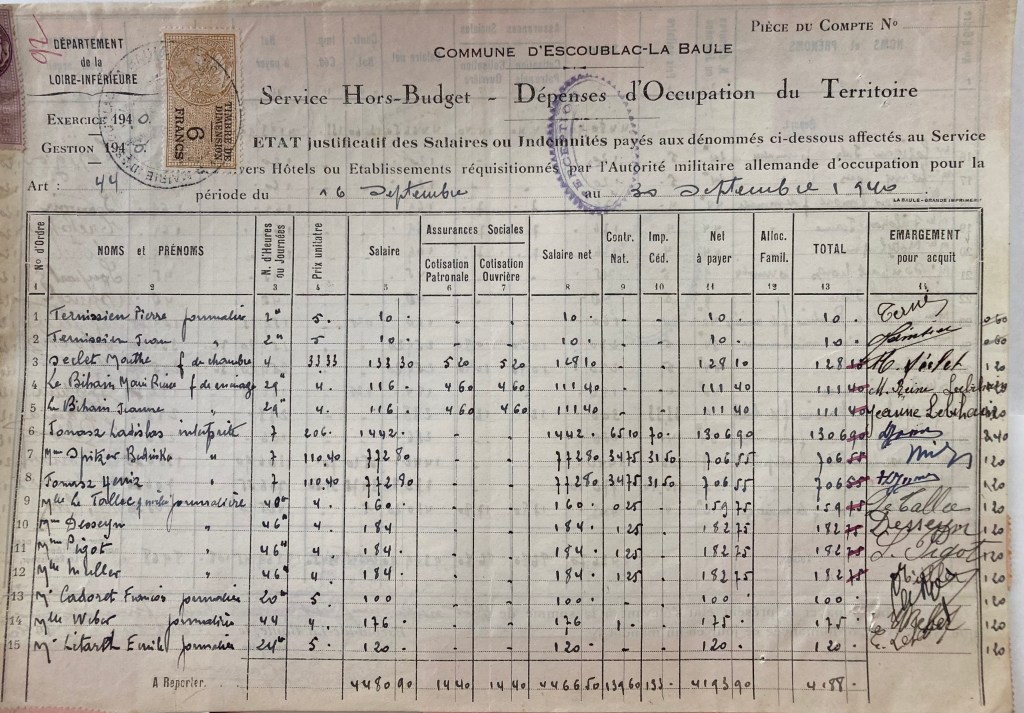 92
DÉPARTEMENT
de la
LOIRE-INFÉRIEURE
TIMBRE DE DIMENSION
6
FRANCS
PIÈCE DU COMPTE N°
COMMUNE D'ESCOUBLAC-LA BAULE
Service Hors-Budget - Dépenses d'Occupation du Territoire
EXERCICE 1940
GESTION 194
ETAT justificatif des Salaires ou Indemnités payés aux dénommés ci-dessous affectés au Service
vers Hôtels ou Etablissements réquisitionnés par l'Autorité militaire allemande d'occupation pour la
Art : 44
période du 16 Septembre au 30 Septembre 1940
LA BAULE
N° d'Ordre NOMS et PRÉNOMS N. d'Heures ou Journées Prix unitaire Salaire Assurances Sociales Cotisation Patronale Cotisation Ouvrière Salaire net Contr. Nat. Imp. Céd. Net à payer Alloc. Famil. TOTAL EMARGEMENT pour acquit
1 2 3 4 5 6 7 8 9 10 11 12 13 14
1 Ternissien Pierre journalier 2" 5. 10 . - - 10 . - - 10 . 10 . 0.60
2 Ternissien Jean " 2" 5. 10 . - - 10 . - - 10 . 10 . 0.60
3 Marthe f de chambre 4 33.33 133 30 5 20 5 20 128 10 - - 128 10 128 1.20
4 Le Bihain f de menage 29" 4. 116 . 4 60 4 60 111 40 - - 111 40 111 40
5 Le Bihain Jeanne " 29" 4. 116 . 4 60 4 60 111 40 - - 111 40 111 40 Jeanne Lebihain
6 Tomasz Ladislas interprète 7 206. 1442 . - - 1442 . 65 10 70 . 1306 90 1306 90 2.40
7 Mme Spitzer " 7 110.40 772 80 - - 772 80 34 75 31 50 706 55 706 55 1.20
8 Tomasz " 7 110.40 772 80 - - 772 80 34 75 31 50 706 55 706 55 1.20
9 Mlle Le Tallec journalière 40" 4. 160 . - - 160 . 0 25 - 159 75 159 75 Le Tallec 1.20
10 Mme Desseyn " 46" 4. 184 . - - 184 . 1 25 - 182 75 182 75 Desseyn 1.20
11 Mme Pigot " 46" 4. 184 . - - 184 . 1 25 - 182 75 182 75 Pigot 1.20
12 Muller " 46" 4. 184 . - - 184 . 1 25 - 182 75 182 75 1.20
13 Mr Cadoret Francois journalier 20" 5. 100 . - - 100 . - - 100 . 100 . 1.20
14 Mlle Weber journalière 44 4. 176 . - - 176 1 . - 175 . 175 . 1.20
15 Mr Emile journalier 24" 5. 120 . - - 120 . - - 120 . 120 . 1.20
A Reporter. 4480 90 14 40 14 40 4466 50 139 60 133 . 4193 90 4188 .